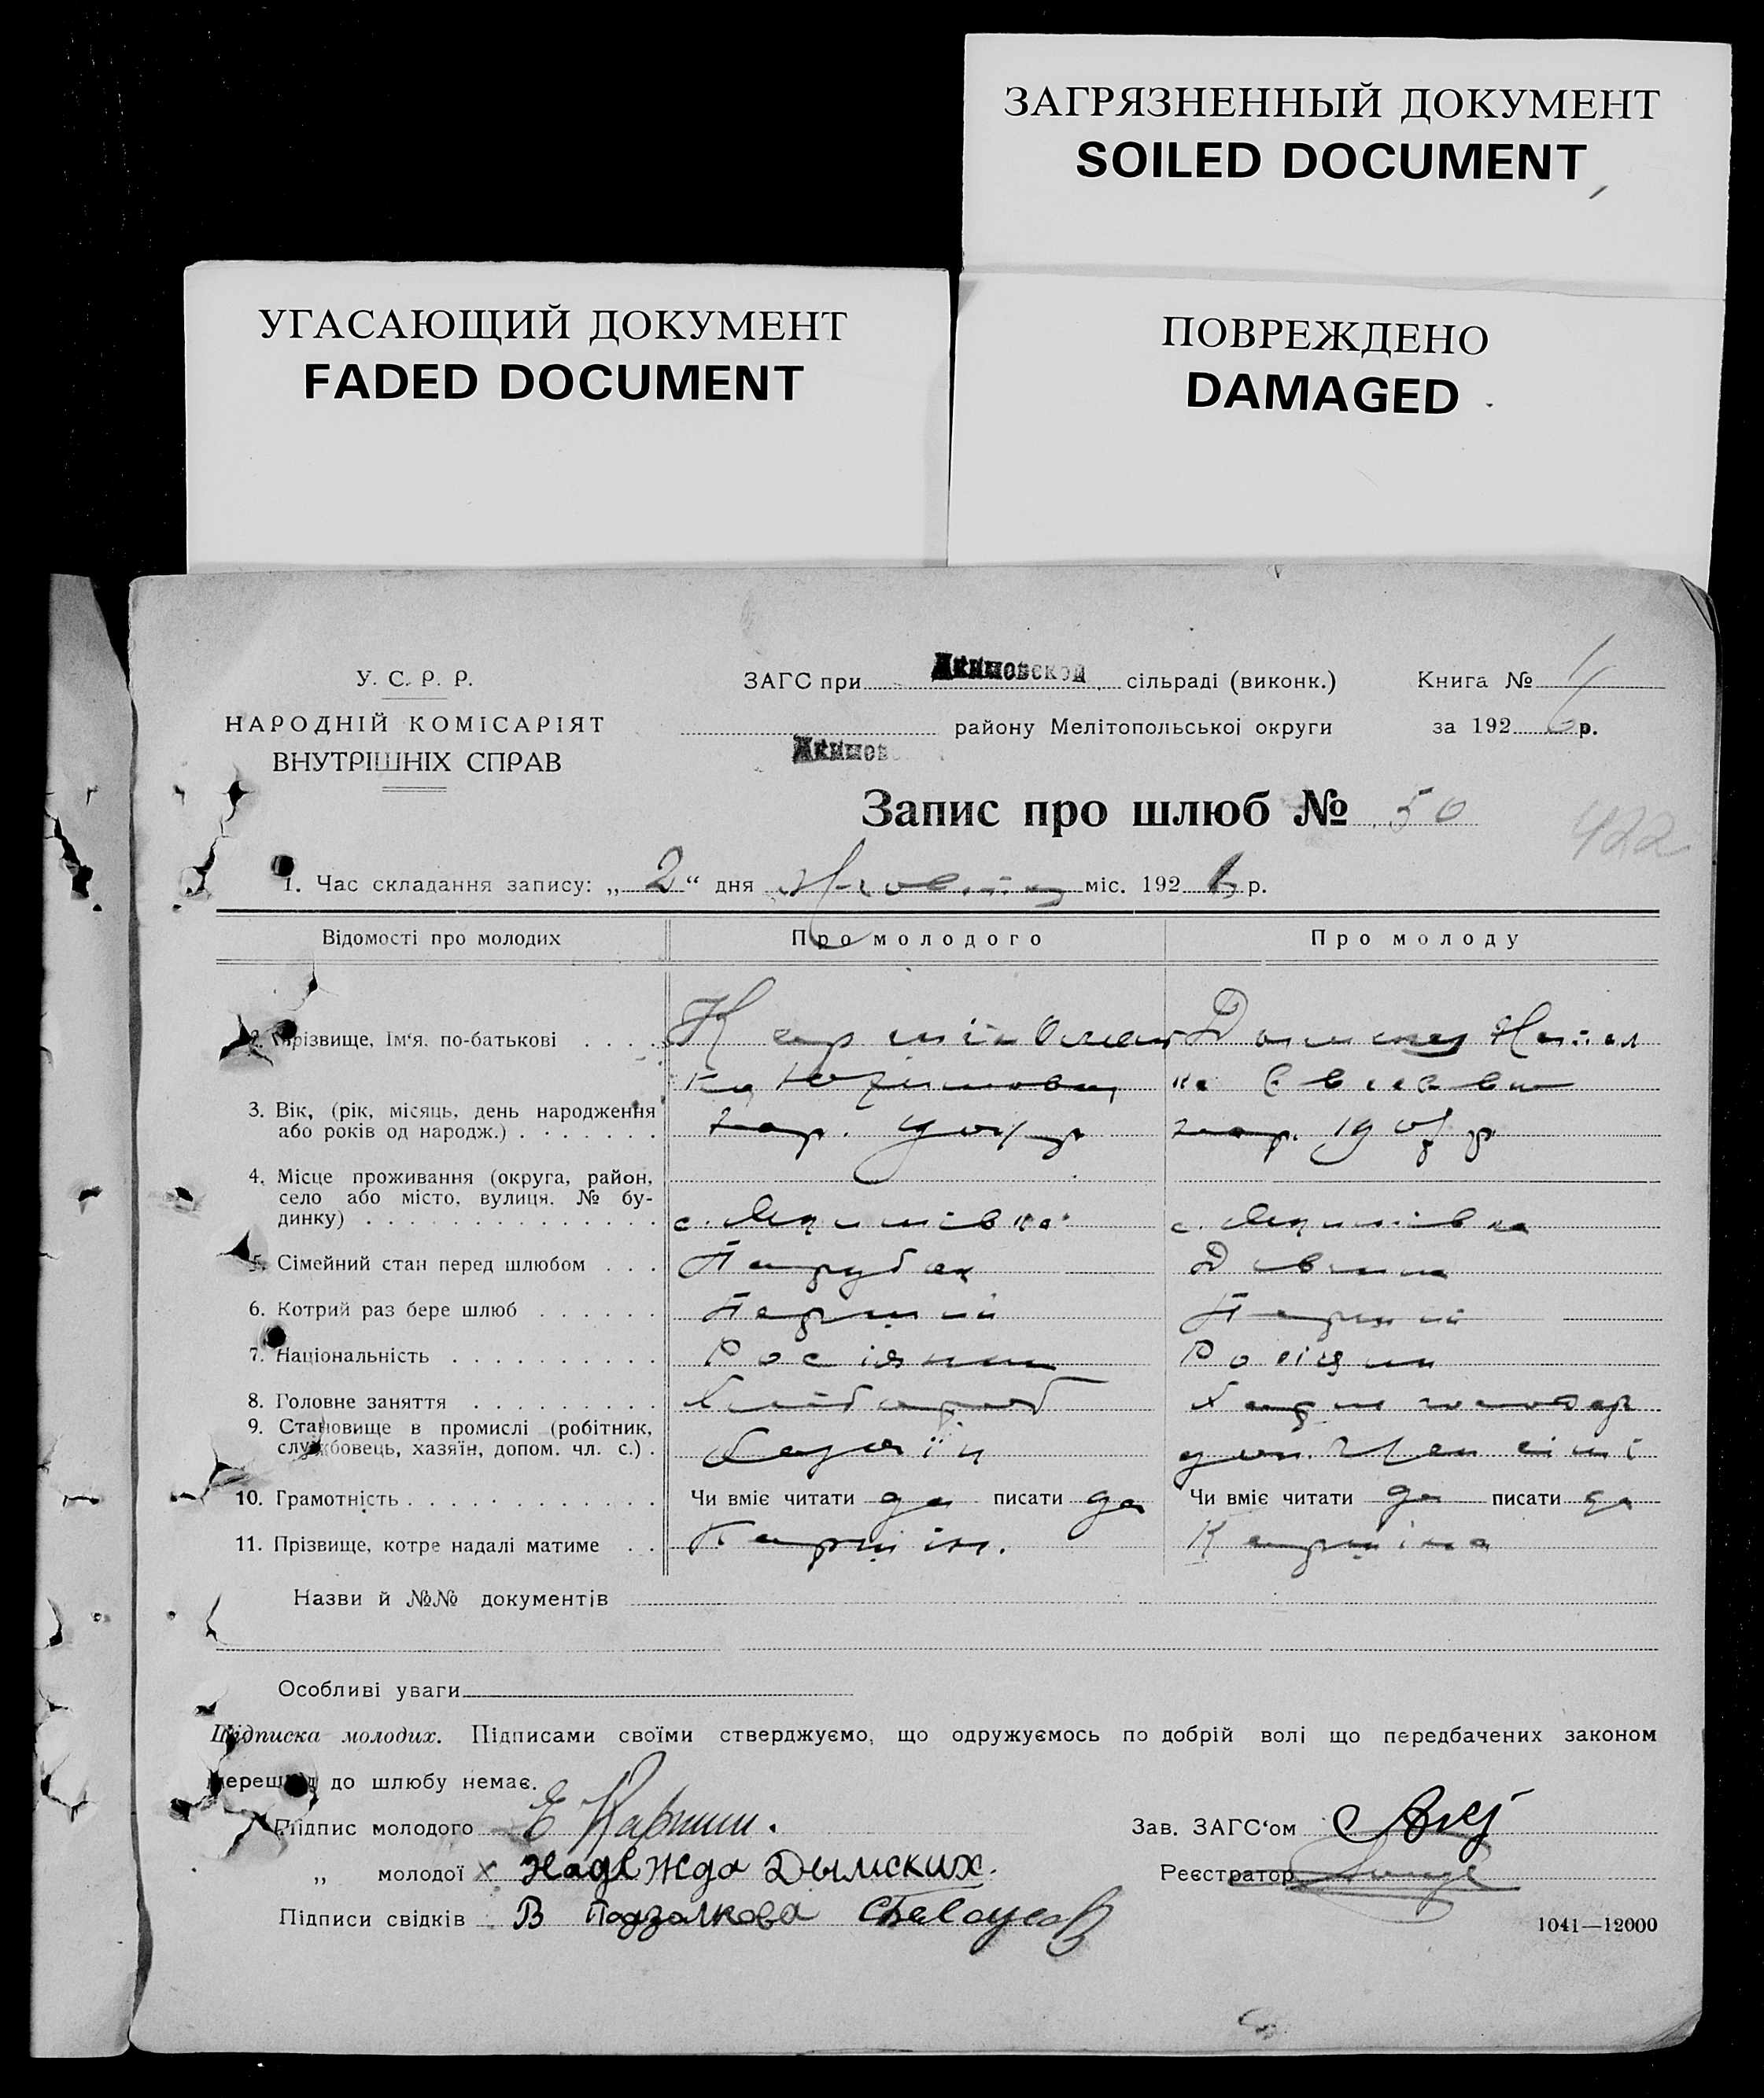 ЗАГРЯЗНЕННЫЙ ДОКУМЕНТ
SOILED DOCUMENT
УГАСАЮЩИЙ ДОКУМЕНТ
FADED DOCUMENT
ПОВРЕЖДЕНО
DAMAGED
У. С. Р. Р.
НАРОДНІЙ КОМІСАРІЯТ
ВНУТРІШНІХ СПРАВ
ЗАГС при Акимовской сільраді (виконк.)
Акимов
району Мелітопольської округи
Книга №
за 1926 р.
Запис про шлюб № 50
422
1. Час складання запису: „2“ дня міс. 1926 р.
Відомості про молодих Про молодого Про молоду
2. Прізвище, Ім'я, по-батькові
3. Вік, (рік, місяць, день народження нар. нар. 190
або років од народж.)
4. Місце проживання (округа, район,
село або місто, вулиця. № бу-
динку) с. Якимівка с. Якимівка
5. Сімейний стан перед шлюбом Парубок Дівчина
6. Котрий раз бере шлюб Перший Перший
7. Національність Росіянин Росіян
8. Головне заняття Хлібороб
9. Становище в промислі (робітник,
службовець, хазяїн, допом. чл. с.) Хазяїн доп. член сімї
10. Грамотність Чи вміє читати да писати да Чи вміє читати да писати да
11. Прізвище, котре надалі матиме Каршін. Каршіна
Назви й №№ документів
Особливі уваги
Підписка молодих. Підписами своїми стверджуємо, що одружуємось по добрій волі що передбачених законом
перешкод до шлюбу немає.
Підпис молодого Е Каршин.
„ молодої х Надежда Дымских.
Підписи свідків В Подзолкова СБелоусов
Зав. ЗАГС'ом
Реєстратор
1041—12000